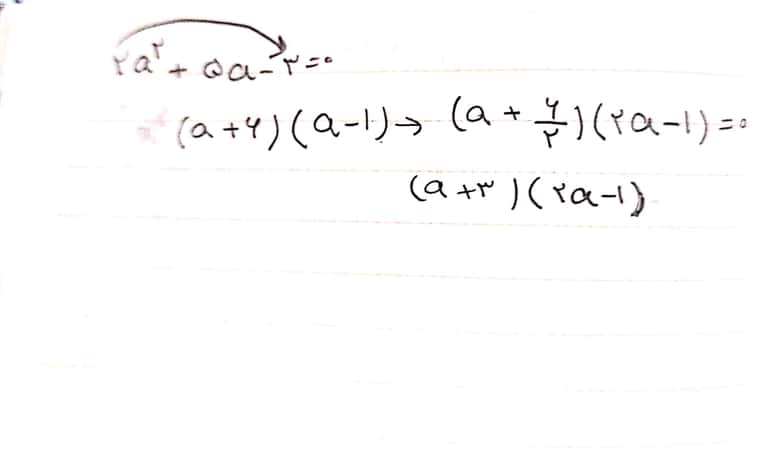 ۲a² + ۵a - ۳ = ۰
(a + ۶) (a - ۱) → (a + ۶/۲) (۲a - ۱) = ۰
(a + ۳) (۲a - ۱)